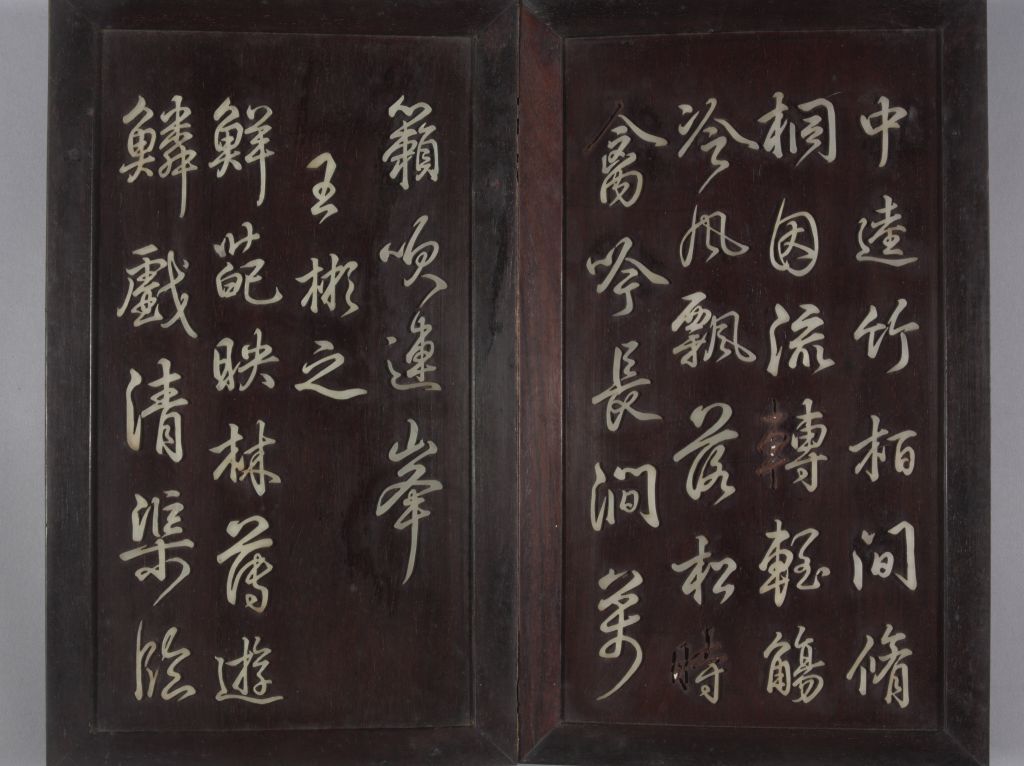 中逵竹栢間脩
桐因流轉輕觴
冷風飄落松時
禽吟長澗萬
籟吹連峯
王彬之
鮮葩映林薄遊
鱗戲清渠臨